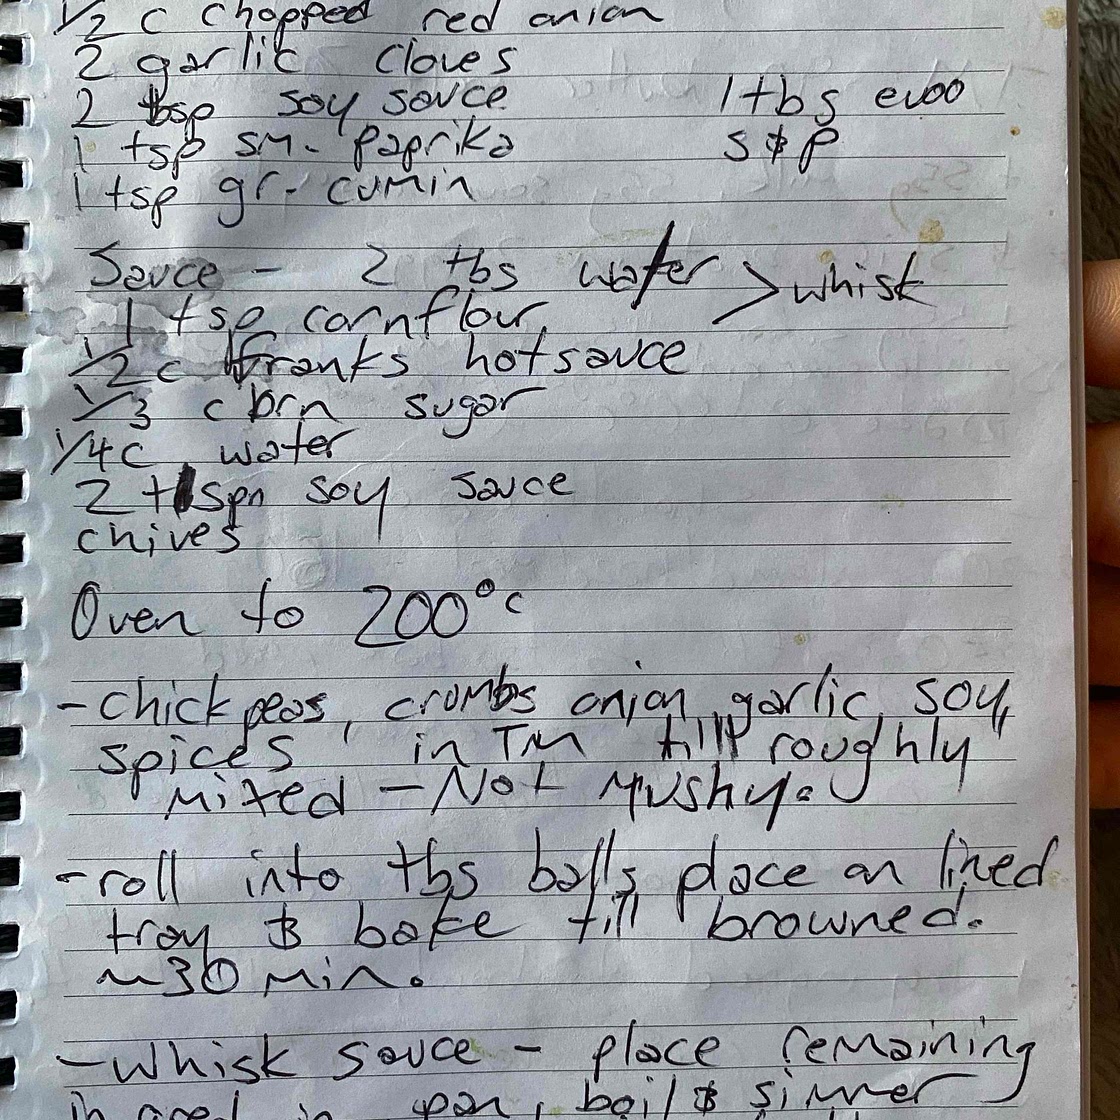 1/2 c chopped red onion
2 garlic cloves
2 tbsp soy sauce 1 tbs evoo
1 tsp sm. paprika s & p
1 tsp gr. cumin
Sauce - 2 tbs water > whisk
1 tsp cornflour
1/2 c franks hot sauce
1/3 c brn sugar
1/4 c water
2 tspn soy sauce
chives
Oven to 200°c
- chickpeas, crumbs onion, garlic, soy,
spices in TM till roughly
mixed - Not mushy.
- roll into tbs balls place on lined
tray & bake till browned.
~30 min.
- whisk sauce - place remaining
ingred in pan, boil & simmer